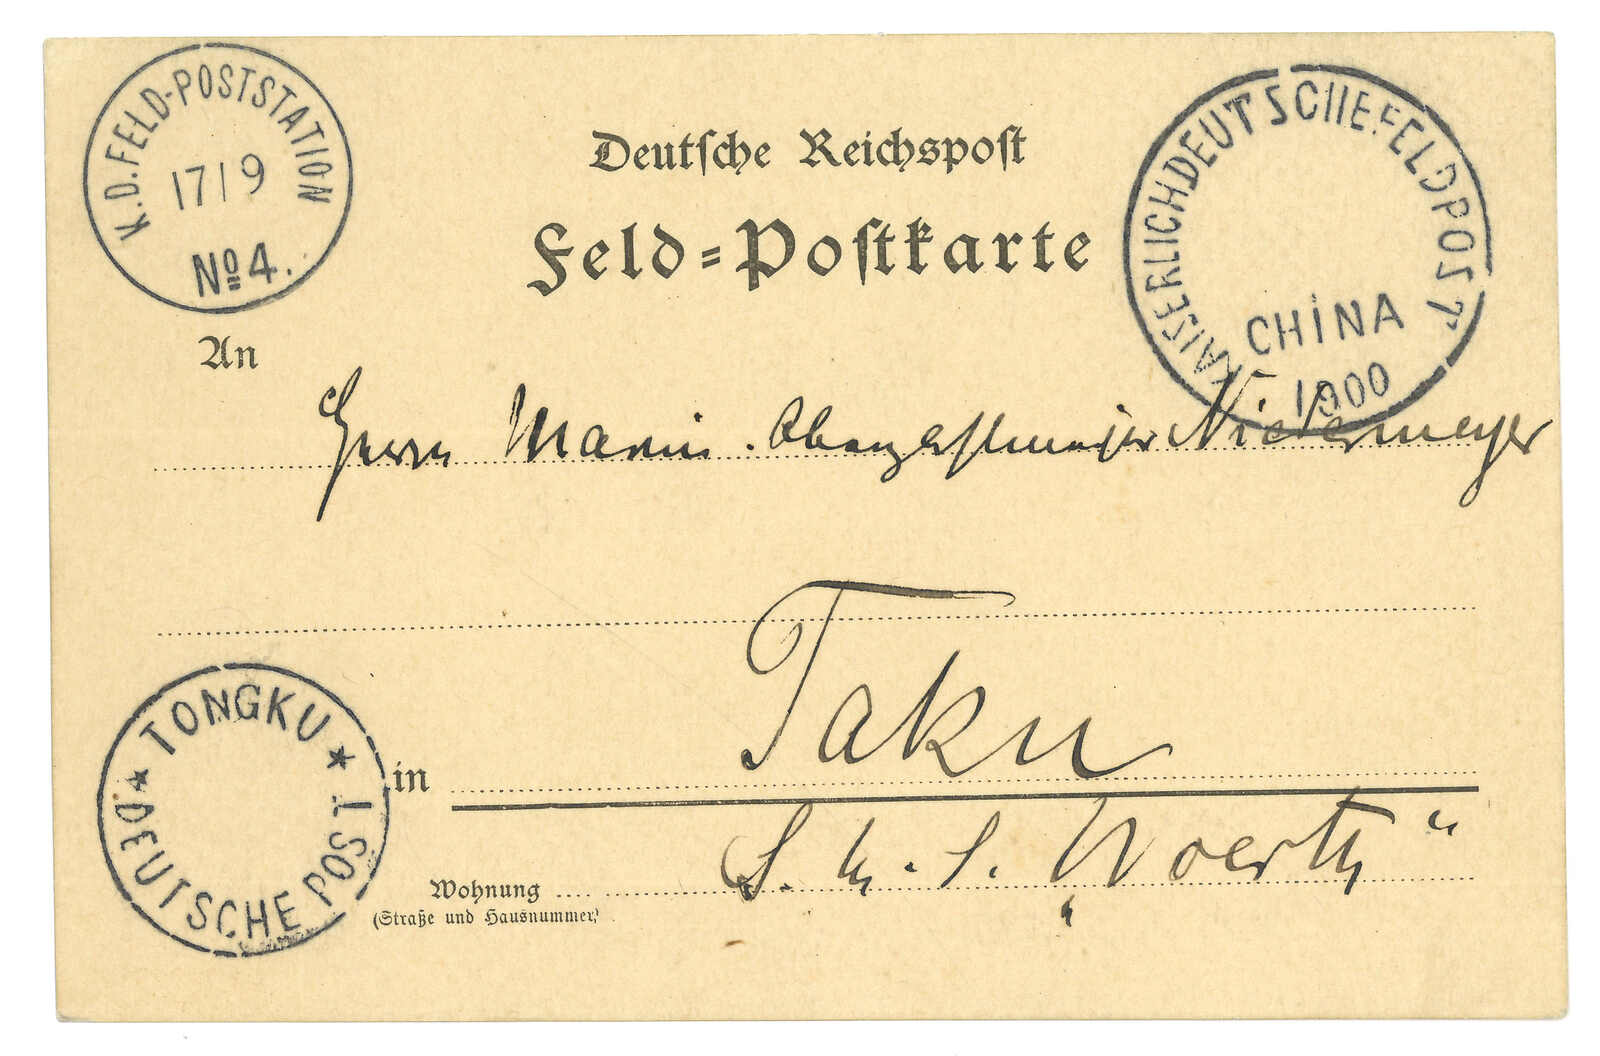 K.D.FELD-POSTSTATION
17/9
No 4.
KAISERLICH DEUTSCHE.FELDPOST
CHINA
1900
Deutſche Reichspoſt
Feld=Poſtkarte
An
Herrn Marine-Oberzahlmeister Niedermeyer
Taku
in
S. M. S. „Woerth“
Wohnung
(Straße und Hausnummer)
* TONGKU *
DEUTSCHE POST